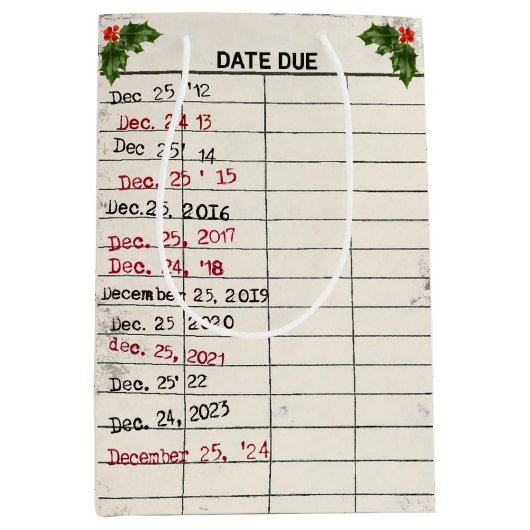 DATE DUE
Dec 25 '12
Dec. 24 13
Dec 25' 14
Dec. 25 ' 15
Dec.25, 2016
Dec. 25, 2017
Dec. 24, '18
December 25, 2019
Dec. 25 2020
dec. 25, 2021
Dec. 25' 22
Dec. 24, 2023
December 25, '24